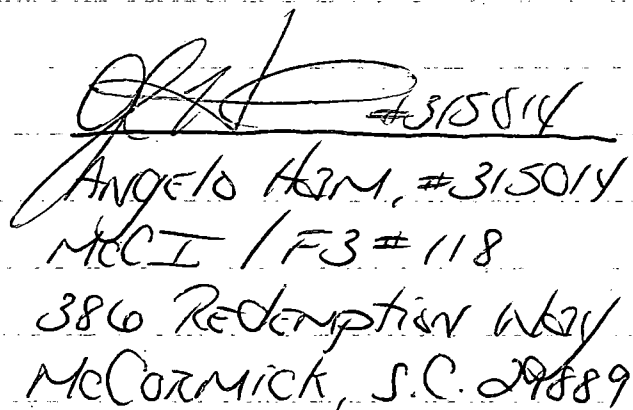 #315014
ANGElO HAM, #315014
MCCI / F3 # 118
386 REDEMPTION WAY
MCCORMICK, S.C. 29889